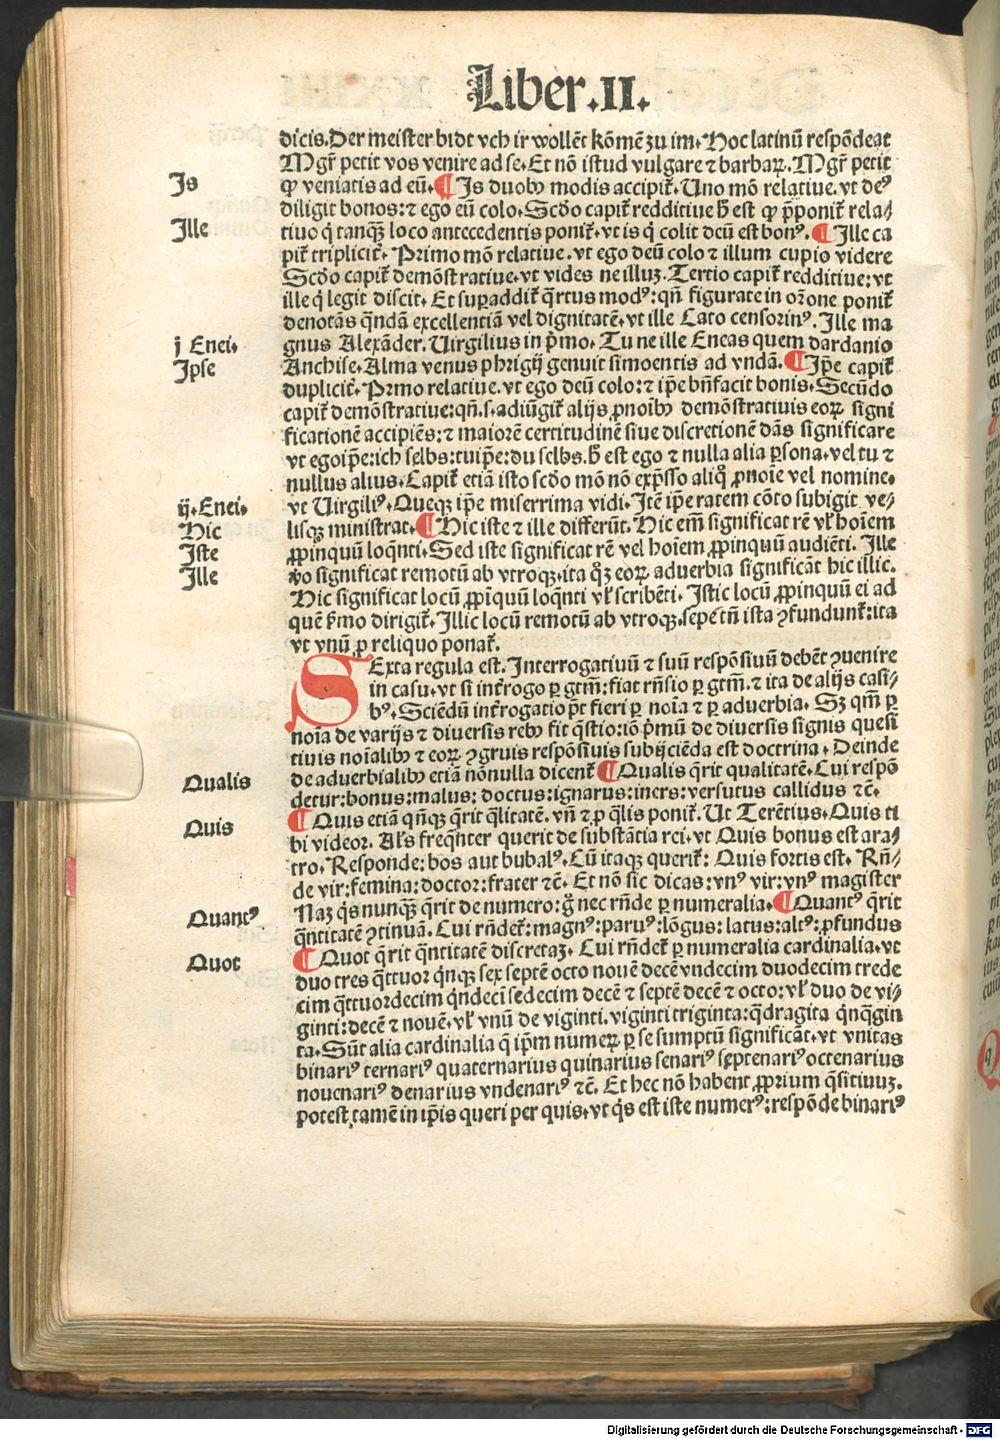 Liber.II.
dicis. Der meister bidt vch ir wollēt kōmē zu im. Hoc latinū respōdeat
Mgr̄ petit vos venire ad se. Et nō istud vulgare ⁊ barbaꝝ. Mgr̄ petit
Is
ꝙ veniatis ad eū. ¶ Is duobꝰ modis accipit̄. Uno mō relatiue. vt deꝰ
diligit bonos: ⁊ ego eū colo. Scd̄o capit̄ redditiue h̄ est ꝙ p̄ponit̄ rela/
Ille
tiuo q̇ tanqꝫ loco antecedentis ponit̄. vt is q̇ colit deū est bonꝰ. ¶ Ille ca
pit̄ triplicit̄. Primo mō relatiue. vt ego deū colo ⁊ illum cupio videre
Scd̄o capit̄ demōstratiue. vt vides ne illuꝫ. Tertio capit̄ redditiue: vt
ille q̇ legit discit. Et suꝑaddit̄ q̄rtus modꝰ: qn̄ figurate in or̄one ponit̄
denotās quāndā excellentiā vel dignitatē. vt ille Cato censorinꝰ. Ille ma
j Enei.
gnus Alexāder. Uirgilius in p̄mo. Tu ne ille Eneas quem dardanio
Ipse
Anchise. Alma venus phrigij genuit simoentis ad vndā. ¶ Ip̄e capit̄
duplicit̄. Prīmo relatiue. vt ego deū colo: ⁊ ip̄e bn̄facit bonis. Secūdo
capit̄ demōstratiue: qn̄.s. adiūgit̄ alijs ꝓnoībꝰ demōstratiuis eoꝝ signi
ficationē accipiēs: ⁊ maiorē certitudinē siue discretionē dās significare
vt egoip̄e: ich selbs: tuip̄e: du selbs. h̄ est ego ⁊ nulla alia ꝑsona. vel tu ⁊
nullus alius. Capit̄ etiā isto scd̄o mō nō exp̄sso aliq̊ ꝓnoīe vel nomine.
ij. Enei.
vt Uirgiliꝰ. Queqꝫ ip̄e miserrima vidi. Itē ip̄e ratem cōto subigit ve/
Hic
lisqꝫ ministrat. ¶ Hic iste ⁊ ille differūt. Hic em̄ significat rē vl̓ hoīem
Iste
ꝓpinquū loqn̄ti. Sed iste significat rē vel hoīem ꝓpinquū audiēti. Ille
Ille
v̊o significat remotū ab vtroqꝫ. ita qꝫ eoꝝ aduerbia significāt hic illic.
Hic significat locū ꝓpīquū loqn̄ti vl̓ scribēti. Istic locū ꝓpinquū ei ad
quē s̄mo dirigit̄. Illic locū remotū ab vtroqꝫ. sepe tn̄ ista ↄfundunt̄: ita
vt vnū ꝑ reliquo ponat̄.
SExta regula est. Interrogatiuū ⁊ suū respōsiuū debēt ↄuenire
in casu. vt si int̄rogo ꝑ gtm̄: fiat rn̄sio ꝑ gtm̄. ⁊ ita de alijs casi/
bꝰ. Sciēdū int̄rogatio pt̄ fieri ꝑ noīa ⁊ ꝑ aduerbia. Sꝫ qm̄ ꝑ
noīa de varijs ⁊ diuersis rebꝰ fit q̄stio: iō p̄mū de diuersis signis quesi
tiuis noīalibꝰ ⁊ eoꝝ ↄgruis respōsiuis subijciēda est doctrina. Deinde
Qualis
de aduerbialibꝰ etiā nōnulla dicent̄ ¶ Qualis q̄rit qualitatē. Cui respō
detur: bonus: malus: doctus: ignarus: iners: versutus callidus ⁊c̄.
Quis
¶ Quis etiā qn̄qꝫ q̄rit q̄litatē. vn̄ ⁊ ꝑ q̄lis ponit̄. Ut Terētius. Quis ti
bi videor. Al̓s freqn̄ter querit de substātia rei. vt Quis bonus est ara/
tro. Responde: bos aut bubalꝰ. Cū itaqꝫ querit̄: Quis fortis est. Rn̄/
de vir: femina: doctor: frater ⁊c̄. Et nō sic dicas: vnꝰ vir: vnꝰ magister
Quantꝰ
Naꝫ q̇s nunqꝫ q̄rit de numero: g̊ nec rn̄de ꝑ numeralia. ¶ Quantꝰ q̄rit
q̄ntitatē ↄtinuā. Cui rn̄det̄: magnꝰ: paruꝰ: lōgus: latus: altꝰ: ꝓfundus
Quot
¶ Quot q̄rit q̄ntitatē discretaꝫ. Cui rn̄det̄ ꝑ numeralia cardinalia. vt
duo tres q̄ttuor q̇nqꝫ sex septē octo nouē decē vndecim duodecim trede
cim q̄ttuordecim q̇ndecī sedecim decē ⁊ septē decē ⁊ octo: vl̓ duo de vi/
ginti: decē ⁊ nouē. vl̓ vnū de viginti. viginti triginta: q̄dragita q̇nq̄gin
ta. Sūt alia cardinalia q̄ ip̄m numeꝝ ꝑ se sumptū significāt. vt vnitas
binariꝰ ternariꝰ quaternarius quinarius senariꝰ septenariꝰ octenarius
nouenariꝰ denarius vndenariꝰ ⁊c̄. Et hec nō habent ꝓprium q̄sitiuuꝫ.
potest tamē in ip̄is queri per quis. vt q̇s est iste numerꝰ: respōde binariꝰ
Digitalisierung gefördert durch die Deutsche Forschungsgemeinschaft - DFG